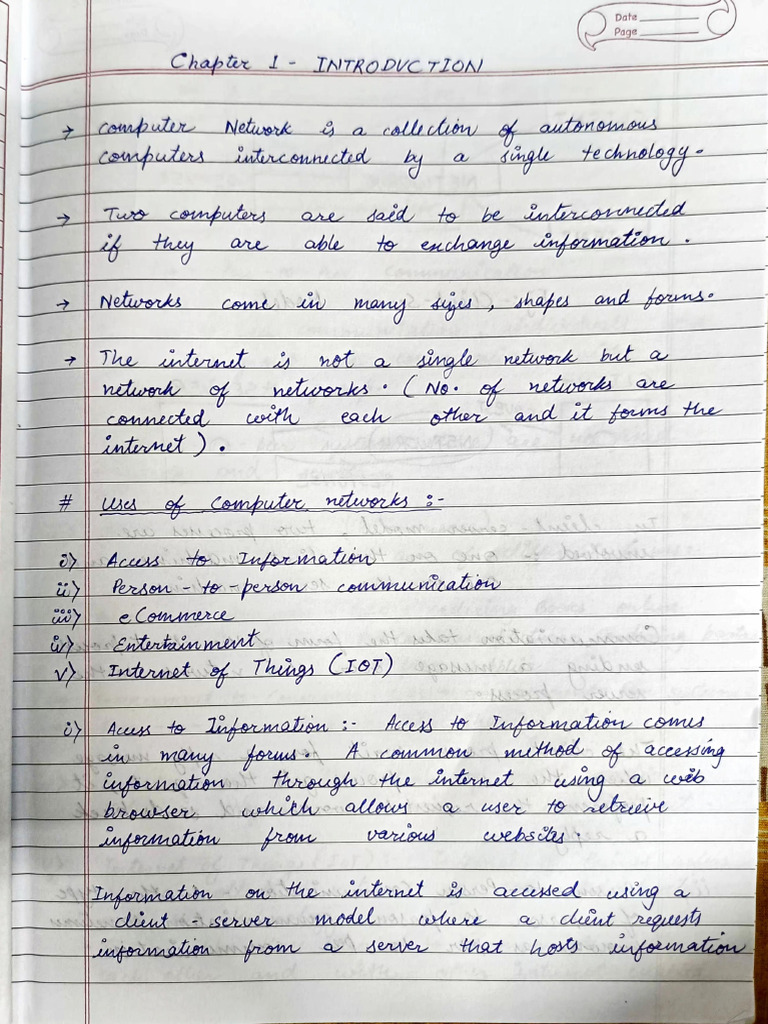 Date
Page
Chapter 1 - INTRODUCTION
→ Computer Network is a collection of autonomous
computers interconnected by a single technology.
→ Two computers are said to be interconnected
if they are able to exchange information.
→ Networks come in many sizes, shapes and forms.
→ The internet is not a single network but a
network of networks. (No. of networks are
connected with each other and it forms the
internet).
# Uses of Computer networks :-
i) Access to Information
ii) Person-to-person communication
iii) eCommerce
iv) Entertainment
v) Internet of Things (IOT)
i) Access to Information :- Access to Information comes
in many forms. A common method of accessing
information through the internet using a web
browser which allows a user to retrieve
information from various websites.
Information on the internet is accessed using a
client-server model where a client requests
information from a server that hosts information